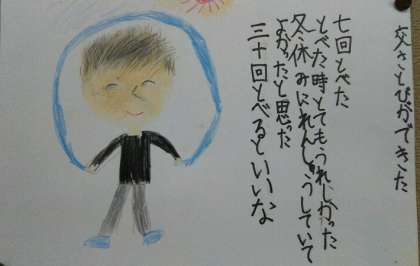 交さとびができた
七回とべた
とべた時とてもうれしかった
冬休みにれんしゅうしていて
よかったと思った
三十回とべるといいな